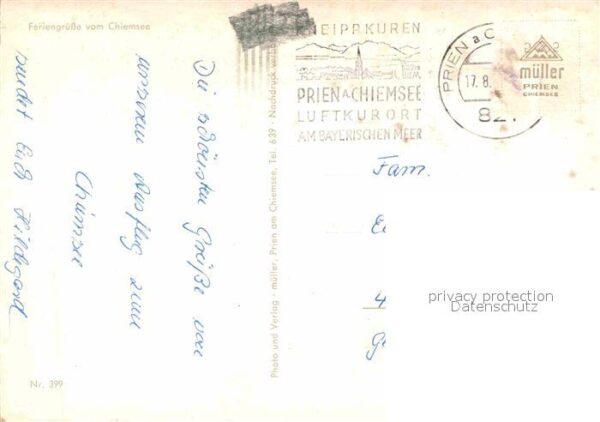 Feriengrüße vom Chiemsee
Die schönsten Grüße von
unserem Ausflug zum
Chiemsee
sendet Euch Hildegard
Nr. 399
Photo und Verlag - müller, Prien am Chiemsee, Tel. 639 - Nachdruck
KNEIPPKUREN
PRIEN A. CHIEMSEE
LUFTKURORT
AM BAYERISCHEN MEER
PRIEN a. C
17. 8.
821
müller
PRIEN
CHIEMSEE
Fam.
4
privacy protection
Datenschutz